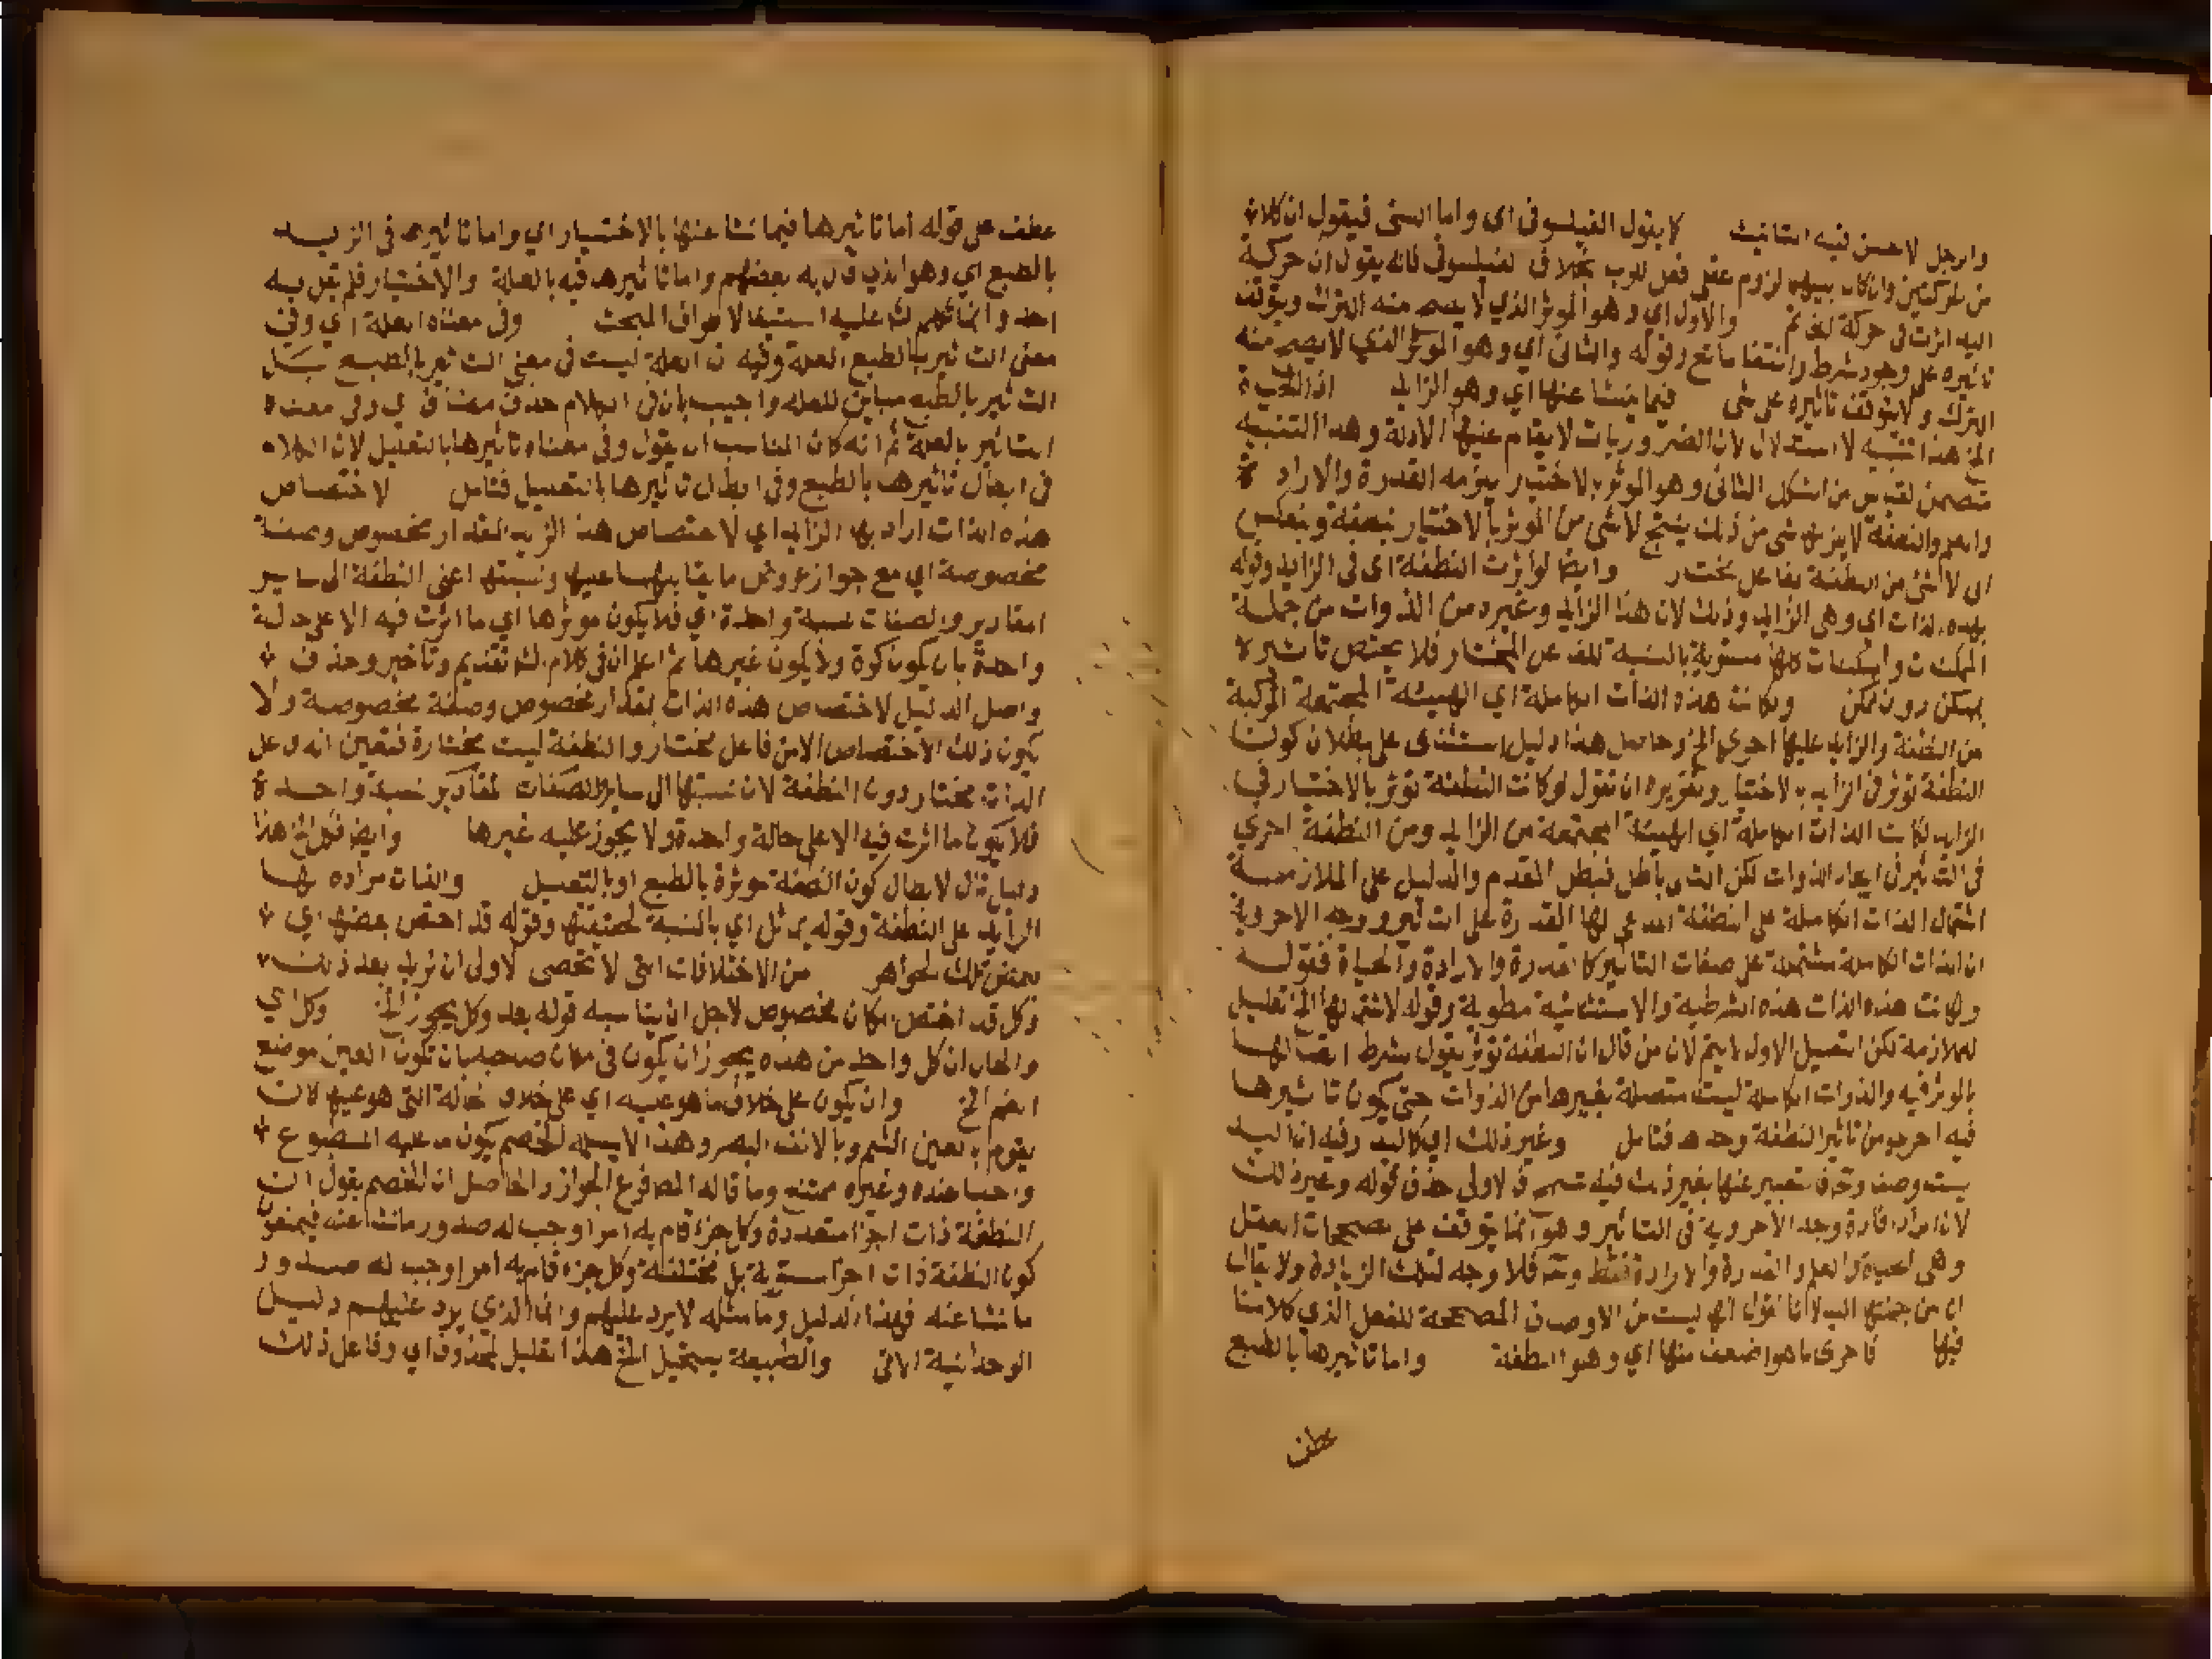 والرجل لا حسن فيه التانيث كما يقول الفيلسوفى اى واما السنى فيقول ان كلا
من الحركتين وان كان بينهما لزوم عقلى فعل للرب بخلاف الفيلسوفى فانه يقول ان حركة
اليد اثرت فى حركة الخاتم والاول اي وهو الموثر الذي لا يصح منه الترك ويتوقف
تاثيره على وجود شرط وانتفا مانع وقوله والثانى اي وهو الموثر الذي لا يصح منه
الترك ولا يتوقف تاثيره على شى فيما ينشا عنها اي وهو الزايد اذ
الخ هذا تنبيه لا استدلال لان الضروريات لا يقام عنها الادلة وهذا التنبيه
متضمن لقياس من الشكل الثانى وهو الموثر بالاختيار يلزمه القدرة والاراد
والعلم والنطفة لا يلزمها شى من ذلك ينتج لا شى من الموثر بالاختيار بنطفة وينعكس
الى لا شى من النطفة بفاعل مختار وايضا لو اثرت النطفة اى فى الزايد وقوله
بهذه الذات اى وهى الزايد وذلك لان هذا الزايد وغيره من الذوات من جملة
الممكنات والممكنات كلها مستوية بالنسبة للفاعل المختار فلا يختص تاثيره
بممكن دون ممكن ولكانت هذه الذات الكاملة اي الهيئة المجتمعة المركبة
من النطفة والزايد عليها احرى الخ وحاصل هذا دليل استثنائى على بطلان كون
النطفة توثر فى الزايد بالاختيار وتقريره ان تقول لو كانت النطفة توثر بالاختيار فى
الزايد لكانت الذات الكاملة اي الهيئة المجتمعة من الزايد ومن النطفة احرى
فى التاثير فى ايجاد الذوات لكن التالى باطل فبطل المقدم والدليل على الملازمة
اشتمال الذات الكاملة على النطفة المدعى لها القدرة على التاثير ووجه الاحروية
ان الذات الكاملة مشتملة على صفات التاثير كالقدرة والارادة والحياة فقوله
ولكانت هذه الذات هذه الشرطية والاستثنائية مطوية وقوله لاشتمالها الخ تعليل
للملازمة لكن التعليل الاول لا يتم لان من قال ان النطفة توثر يقول بشرط اتصالها
بالموثر فيه والذوات الكاملة ليست متصلة بغيرها من الذوات حتى يكون تاثيرها
فيه احرى من تاثير النطفة وحدها فتامل وغير ذلك اي كاليد وفيه ان اليد
ليست وصفا وحق التعبير عنها بغير ذلك فيه تسمح فالاولى حذف قوله وغير ذلك
لان المراد افادة وجه الاحروية فى التاثير وهو انما يتوقف على مصححات الفعل
وهى الحياة والعلم والقدرة والارادة فقط وحينئذ فلا وجه لتلك الزيادة ولا يقال
ان من جملتها اليد لانا نقول انها ليست من الاوصاف المصححة للفعل الذي كلامنا
فيها فاحرى ما هو اضعف منها اي وهو النطفة واما تاثيرها بالطبع
عطف
عطف على قوله اما تاثيرها فيما نشا عنها بالاختيار اي واما تاثيرها فى الزايد
بالطبع اي وهو الذي قال به بعضهم واما تاثيرها فيه بالعلة والاختيار فلم يقل به
احد وانما تكلم عليه استيفا لاطراف المبحث وفى معناه العلة اي وفى
معنى التاثير بالطبع العلة وفيه ان العلة ليست فى معنى التاثير بالطبع بل
التاثير بالطبع مباين للعلة واجيب بان فى الكلام حذف مضاف اي وفى معناه
التاثير بالعلة ثم انه كان المناسب ان يقول وفى معناه تاثيرها بالتعليل لان الكلام
فى ابطال تاثيرها بالطبع وفى ابطال تاثيرها بالتعليل فتامل لاختصاص
هذه الذات اراد بها الزايد اي لاختصاص هذا الزايد بمقدار مخصوص وصفة
مخصوصة اي مع جواز عروض ما يقابلهما عليها ونسبتها اعنى النطفة الى ساير
المقادير والصفات نسبة واحدة اي فلا يكون موثرها اي ما اثرت فيه الا على حالة
واحدة بان يكون كرة ولا يكون غيرها ثم اعلم ان فى كلام الش تقديم وتاخير وحذف
واصل الدليل لاختصاص هذه الذات بمقدار مخصوص وصفة مخصوصة ولا
يكون ذلك الاختصاص الا من فاعل مختار والنطفة ليست مختارة فتعين انه فاعل
الذات مختار دون النطفة لان نسبتها الى ساير الصفات المقادير نسبة واحدة
فلا يكون ما اثرت فيه الا على حالة واحدة ولا يجوز عليه غيرها وايضا فكل الخ هذا
دليل ثان لابطال كون النطفة موثرة بالطبع او بالتعليل والذات مراده بها
الزايد على النطفة وقوله يماثل اي بالنسبة لحقيقتها وقوله قد اختص بعضها اي
بعض تلك الجواهر من الاختلافات التى لا تحصى الاولى ان يزيد بعد ذلك
وكل قد اختص بمكان مخصوص لاجل ان يناسبه قوله بعد وكل يجوز الخ وكل اي
والحال ان كل واحد من هذه يجوز ان يكون فى مكان صاحبه بان تكون العين موضع
الفم الخ وان يكون على خلاف ما هو عليه اي على خلاف الحالة التى هو عليها كان
يقوم بالعين الشم وبالانف البصر وهذا لا يسلمه الخصم لكون ما عليه المطبوع
واجبا عنده وغيره ممتنع وما قاله المص فرع الجواز والحاصل ان الخصم يقول ان
النطفة ذات اجزا متعددة وكل جزء قام به امر اوجب له صدور ما نشا عنه فيمنعون
كون النطفة ذات اجزا مستوية بل مختلفة وكل جزء قام به امر اوجب له صدور
ما نشا عنه فهذا الدليل وما مثله لا يرد عليهم وانما الذي يرد عليهم دليل
الوحدانية الاتى والطبيعة يستحيل الخ هذا تعليل لمحذوف اي وفاعل ذلك